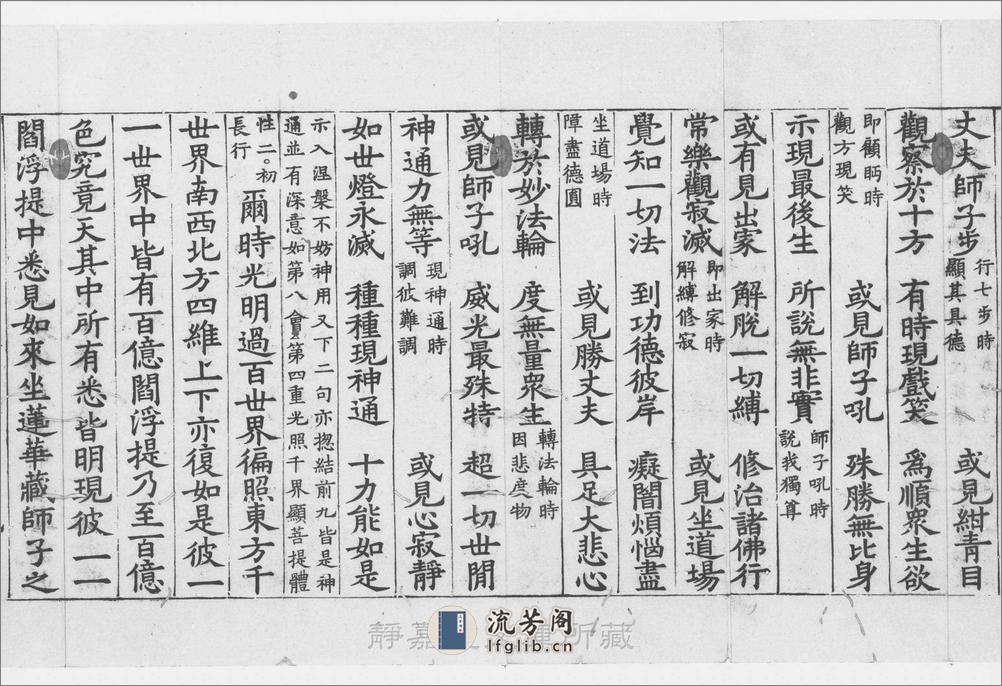 丈夫師子步 行七步時顯其具德 或見紺青目
觀察於十方 有時現戲笑 爲順衆生欲
即顧眄時觀方現笑 或見師子吼 殊勝無比身
示現最後生 所說無非實 師子吼時說我獨尊
或有見出家 解脫一切縛 修治諸佛行
常樂觀寂滅 即出家時解縛修寂 或見坐道場
覺知一切法 到功德彼岸 癡闇煩惱盡
坐道場時障盡德圓 或見勝丈夫 具足大悲心
轉於妙法輪 度無量衆生 轉法輪時因悲度物
或見師子吼 威光最殊特 超一切世間
神通力無等 現神通時調彼難調 或見心寂靜
如世燈永滅 種種現神通 十力能如是
示入涅槃不妨神用又下二句亦揔結前九皆是神
通並有深意如第八會第四重光照千界顯菩提體
性二。初長行 爾時光明過百世界徧照東方千
世界南西北方四維上下亦復如是彼一
一世界中皆有百億閻浮提乃至百億
色究竟天其中所有悉皆明現彼一一
閻浮提中悉見如來坐蓮華藏師子之
靜嘉堂文庫所藏
流芳阁
lfglib.cn